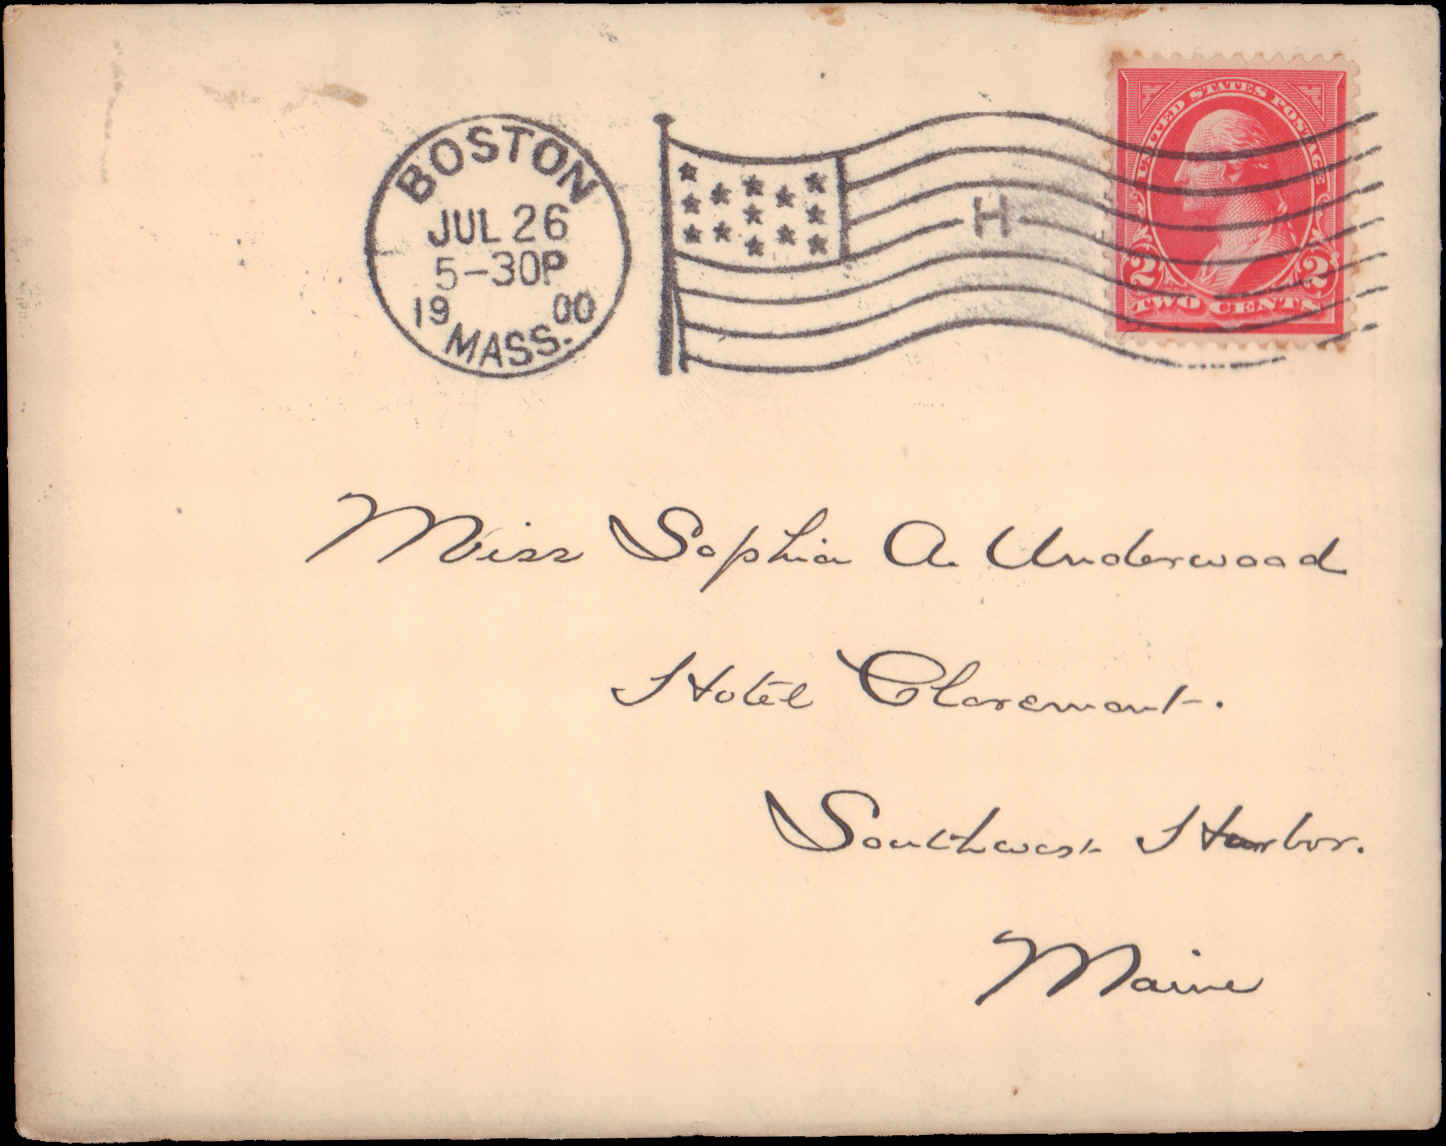 BOSTON
JUL 26
5-30P
19 00
MASS.
H
UNITED STATES POSTAGE
2 2
TWO CENTS
Miss Sophia A. Underwood
Hotel Claremont.
Southwest Harbor.
Maine